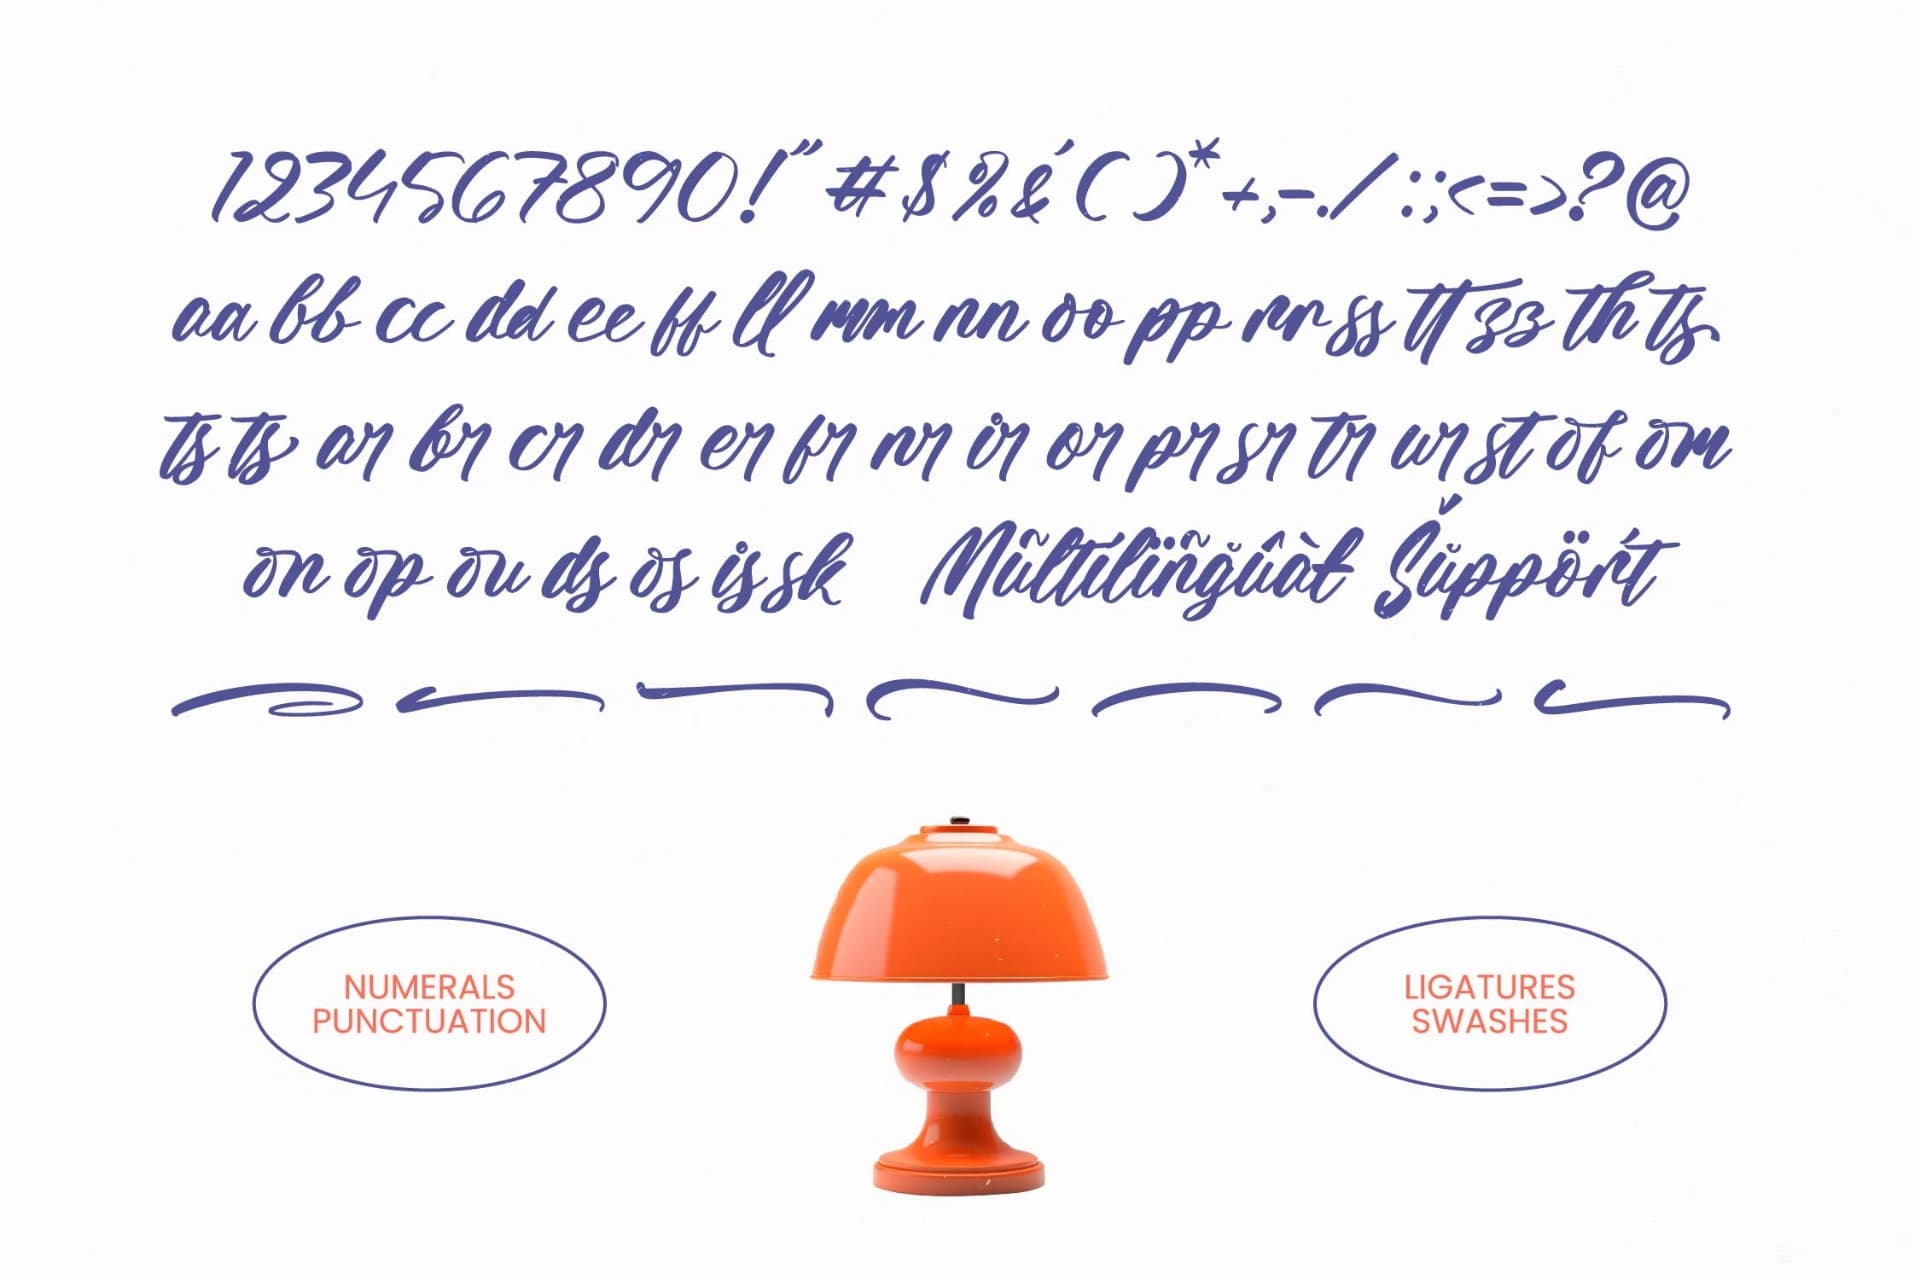 1234567890!" #$%&´()*+,-./:;<=>?@
aa bb cc dd ee ff ll mm nn oo pp rr ss tt zz th ts
ts ts ar br cr dr er fr nr ir or pr sr tr ur st of om
on op ou ds os is sk Mũltíliïñğûàŧ Šŭppöŕt
NUMERALS
PUNCTUATION
LIGATURES
SWASHES